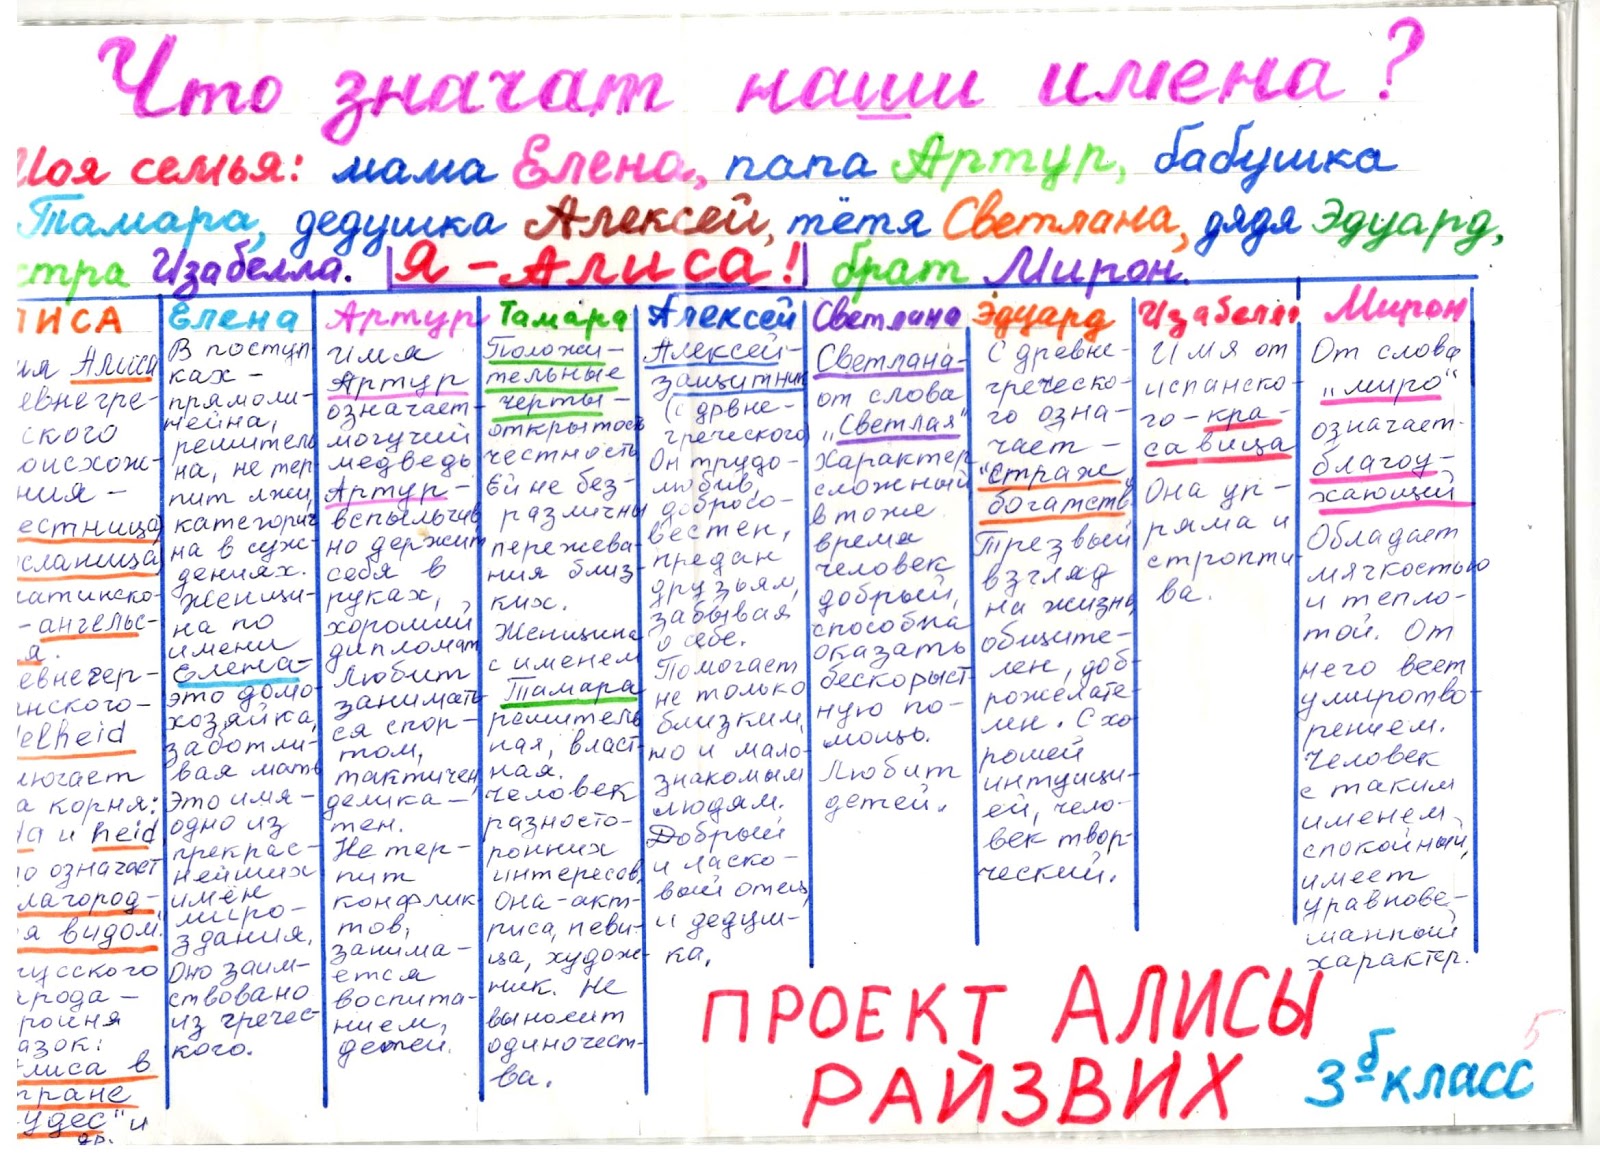 Что значат наши имена?
Моя семья: мама Елена, папа Артур, бабушка
Тамара, дедушка Алексей, тётя Светлана, дядя Эдуард,
стра Изабелла. Я - Алиса! брат Мирон.
ЛИСА
ия Алиса
евнегре-
ского
оисхож-
ния -
естница
сланица
латинско-
- ангельс-
я.
евнегер-
нского -
elheid
лючает
а корня:
la и heid
о означает
лагород-
я видом.
русского
арода -
роиня
азок:
лиса в
тране
удес" и
др.
Елена
В поступ
ках -
прямоли-
нейна,
решитель
на, не тер
пит лжи,
категорич
на в суж-
дениях.
Женщи-
на по
имени
Елена -
это домо-
хозяйка,
заботли-
вая мать
Это имя -
одно из
прекрас-
нейших
имён
миро-
здания.
Оно заим-
ствовано
из гречес-
кого.
Артур
Имя
Артур
означает-
могучий
медведь
Артур -
вспыльчив,
но держит
себя в
руках,
хороший
дипломат
Любит
занимать
ся спор-
том,
тактичен,
делика-
тен.
Не тер-
пит
конфлик
тов,
занима-
ется
воспита-
нием,
детей.
Тамара
Положи-
тельные
черты -
открытость
честность
Ей не без-
различны
пережева-
ния близ-
ких.
Женщина
с именем
Тамара
решитель
ная, власт-
ная.
Человек
разносто-
ронних
интересов.
Она - акт-
риса, певи-
ца, худож-
ник. Не
выносит
одиночест-
ва.
Алексей
Алексей -
защитник
(с дрвне-
греческого)
Он трудо-
любив,
добросо-
вестен,
предан
друзьям,
забывая
о себе.
Помогает
не только
близким,
но и мало-
знакомым
людям.
Добрый
и ласко-
вый отец
и дедуш-
ка.
Светлана
Светлана -
от слова
"Светлая"
Характер
сложный
в тоже
время
человек
добрый,
способна
оказать
бескорыст-
ную по-
мощь.
Любит
детей.
Эдуард
С древне-
греческо-
го озна-
чает -
"страж
богатств
Трезвый
взгляд
на жизнь,
общите-
лен, доб-
рожелате-
лен. С хо
рошей
интуици-
ей, чело-
век твор-
ческий.
Изабелла
Имя от
испанско-
го - кра-
савица
Она уп-
ряма и
стропти-
ва.
Мирон
От слова
"миро"
означает-
благоу-
хающий
Обладает
мягкостью
и тепло-
той. От
него веет
умиротво-
рением.
Человек
с таким
именем,
спокойный,
имеет
уравнове-
шанной
характер.
ПРОЕКТ АЛИСЫ
РАЙЗВИХ
3 б класс
5